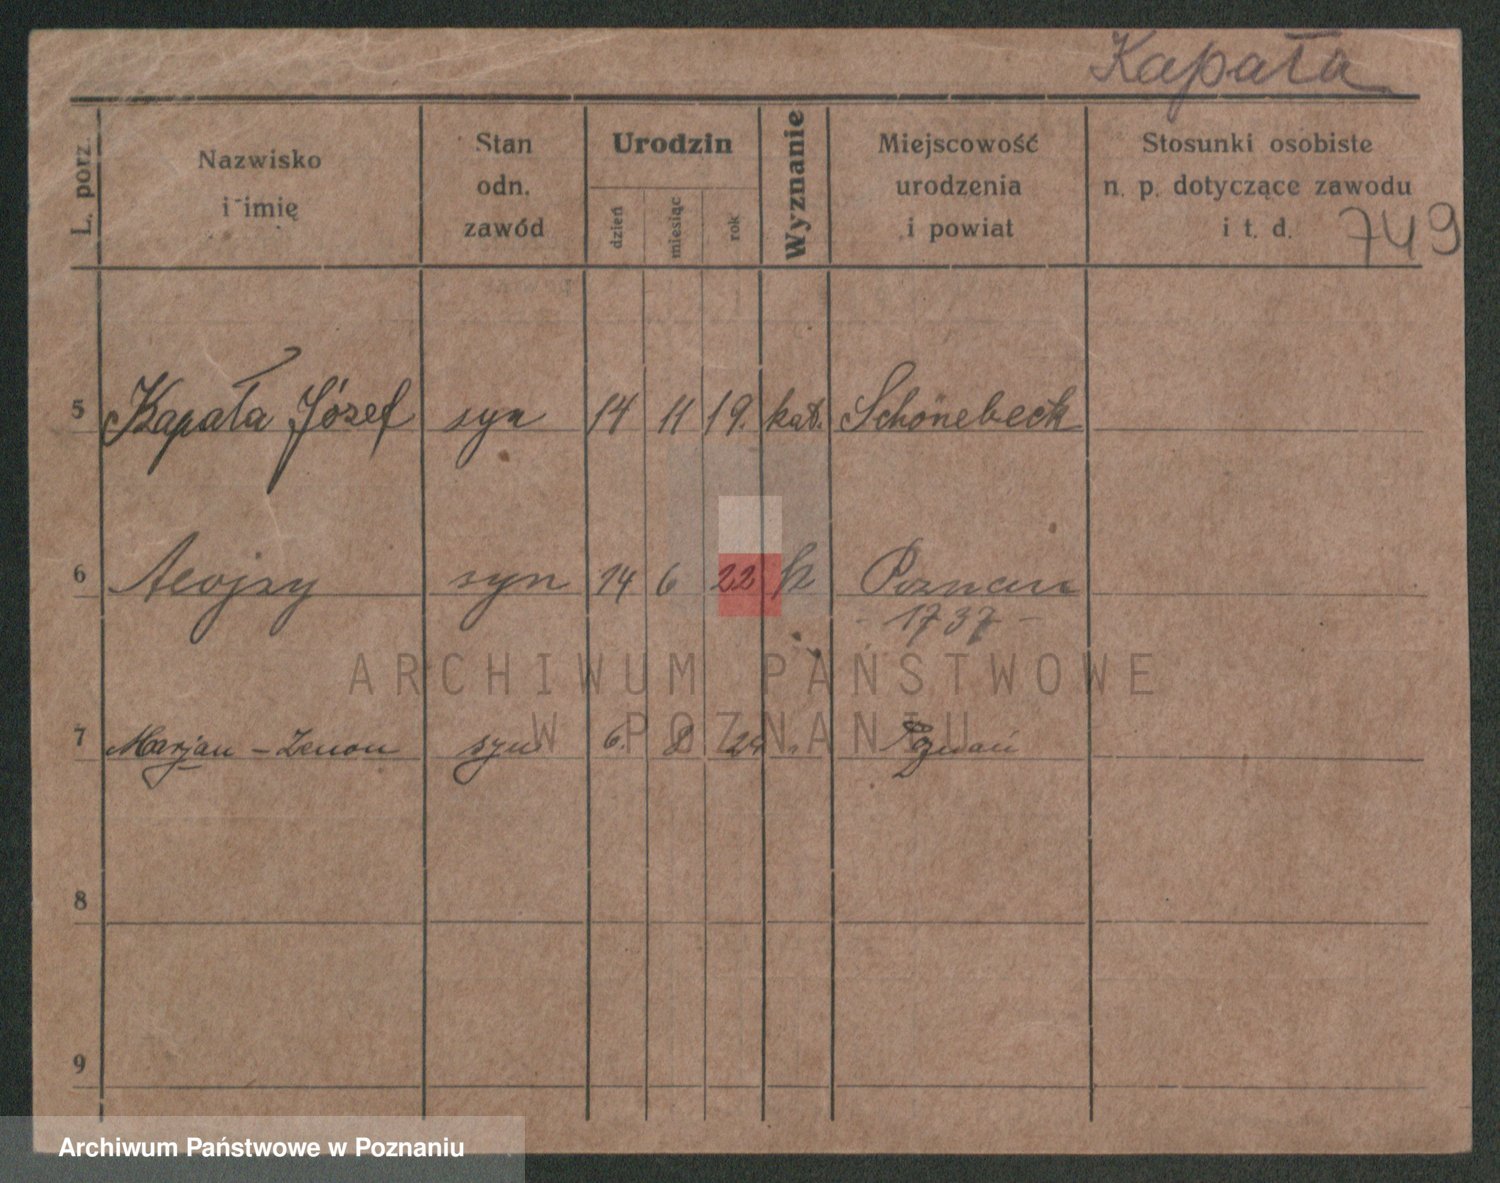 Kapała
L. porz.
Nazwisko
i imię
Stan
odn.
zawód
Urodzin
dzień
miesiąc
rok
Wyznanie
Miejscowość
urodzenia
i powiat
Stosunki osobiste
n. p. dotyczące zawodu
i t. d.
749
5 Kapała Józef syn 14 11 19. kat. Schönebeck
6 Alojzy syn 14 6 22 k Poznań
- 1737 -
ARCHIWUM PAŃSTWOWE
W POZNANIU
7 Marjan - Zenon syn 6. 8 Poznań
8
9
Archiwum Państwowe w Poznaniu